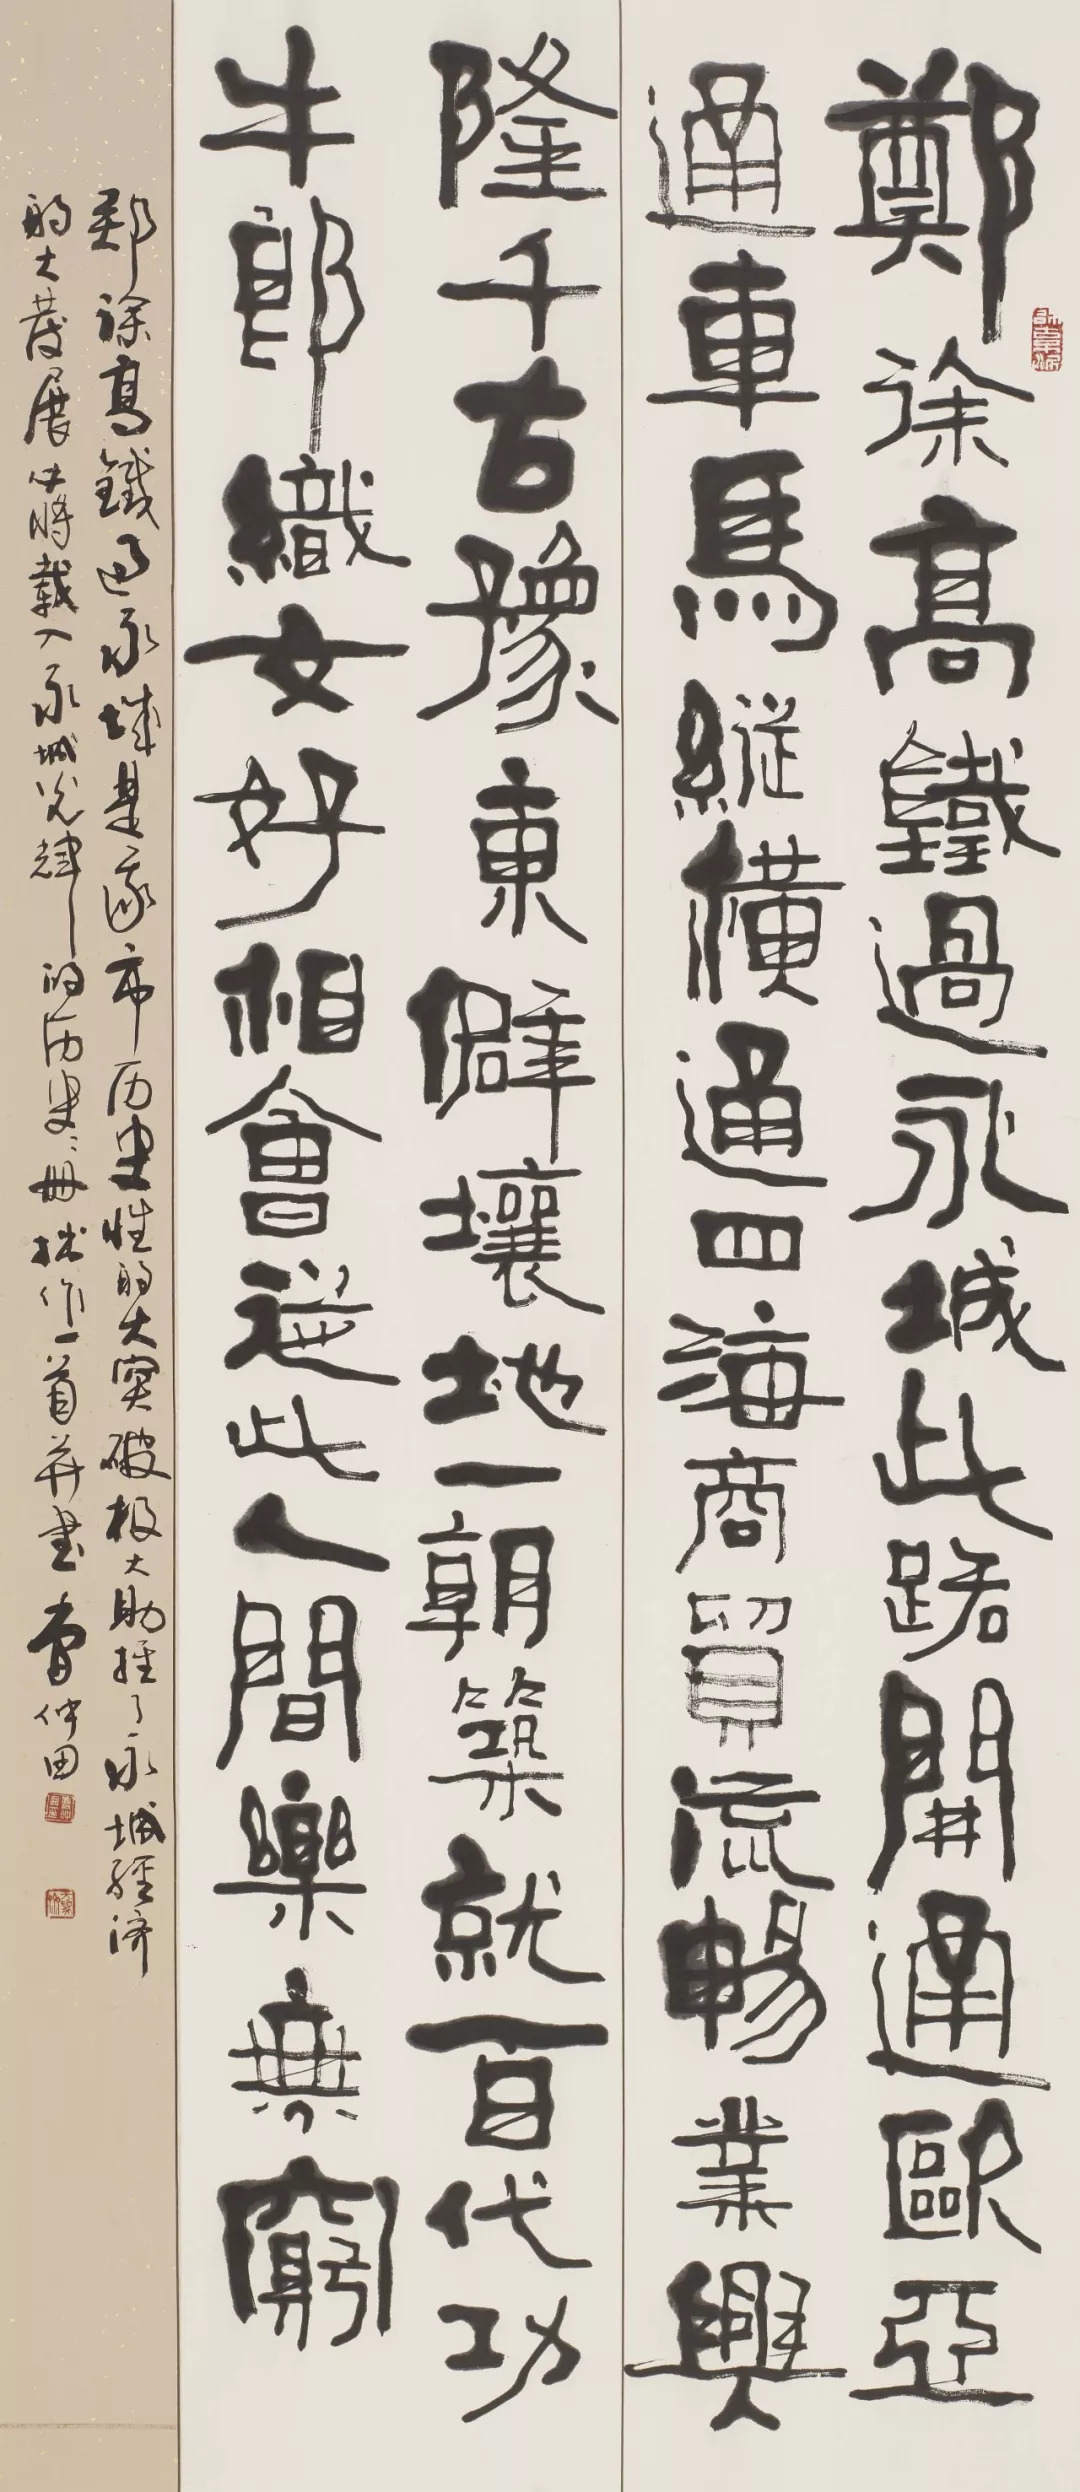 鄭徐高鐵過永城此路開通歐亞
通車馬縱橫通四海商貿流暢業興
隆千古豫東僻壤地一朝築就百代功
牛郎織女好相會從此人間樂無窮
郑徐高鐵過永城是我市历史性的大突破极大助推了永城经济
的大發展必將載入永城光輝的历史〻册拙作一首并書曹仲田